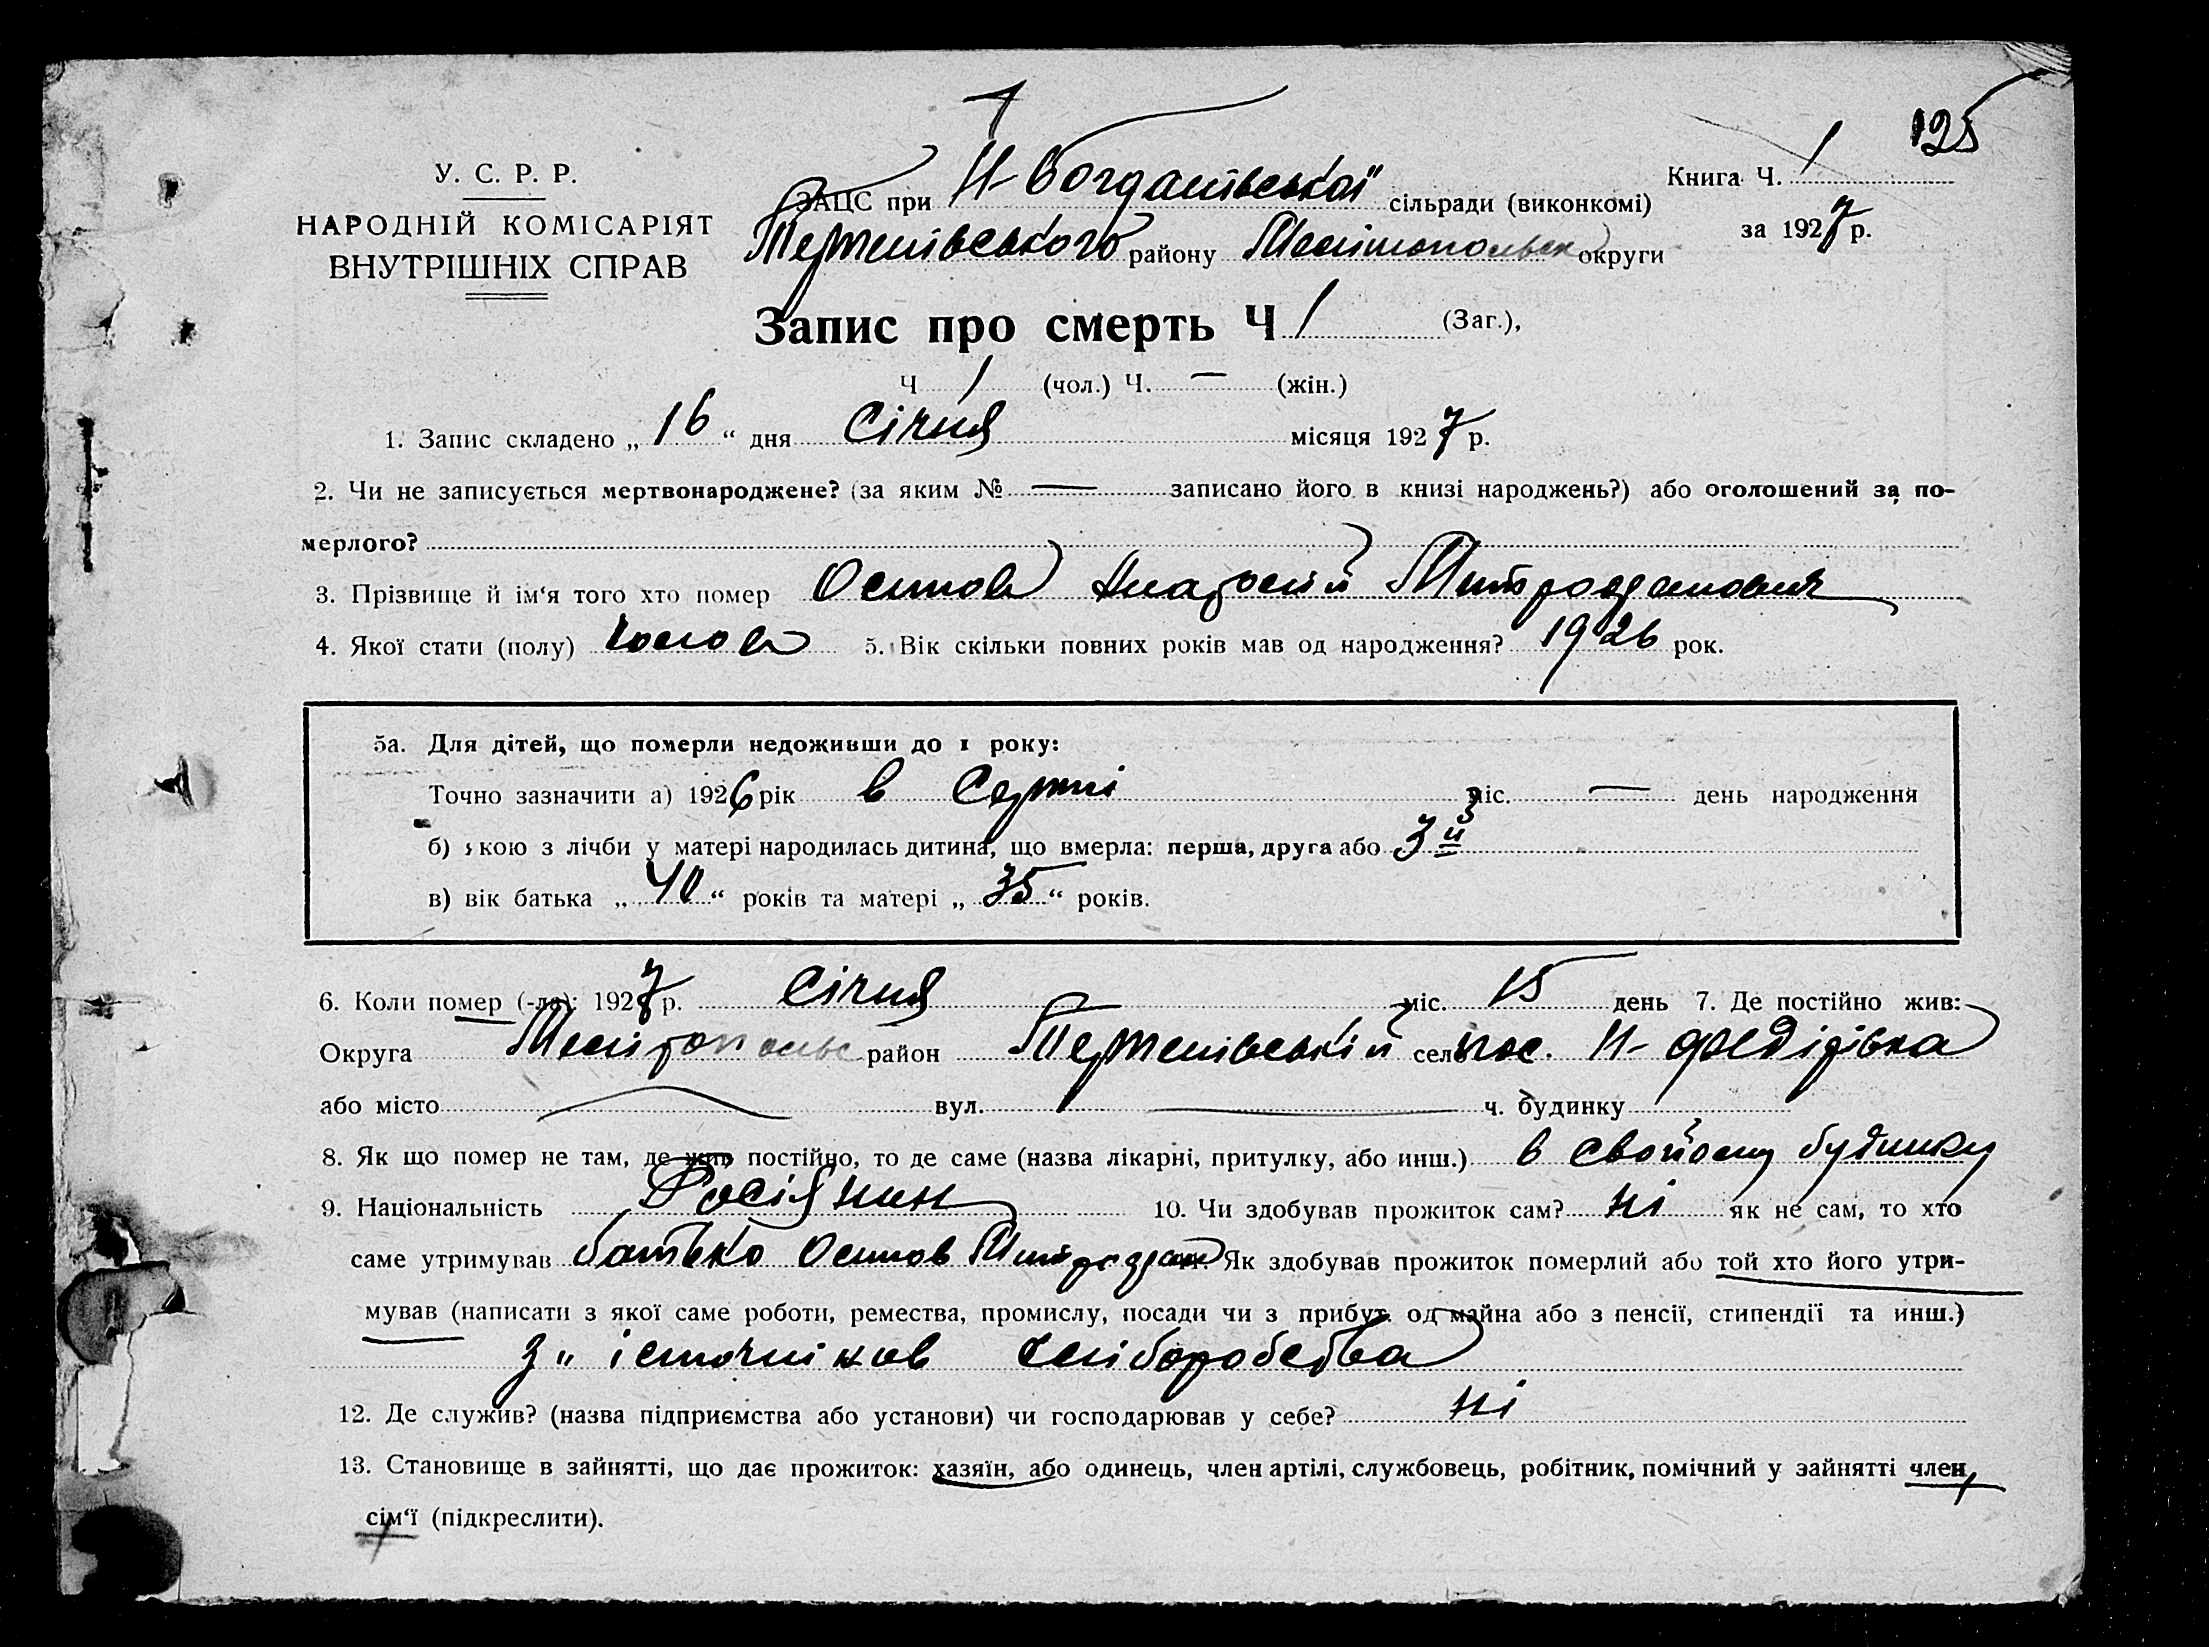 125
У. С. Р. Р.
НАРОДНІЙ КОМІСАРІЯТ
ВНУТРІШНІХ СПРАВ
ЗАЦС при Н-Богданівської сільради (виконкомі)
району Мелітопольск округи
Книга Ч. 1
за 1927 р.
Запис про смерть Ч 1 (Заг.),
Ч 1 (чол.) Ч. — (жін.)
1. Запис складено „ 16 “ дня Січня місяця 1927 р.
2. Чи не записується мертвонароджене? (за яким № — записано його в книзі народжень?) або оголошений за по-
мерлого?
3. Прізвище й ім‘я того хто помер Осипов
4. Якої стати (полу) 5. Вік скільки повних років мав од народження? 1926 рок.
5а. Для дітей, що померли недоживши до 1 року:
Точно зазначити а) 1926 рік в Серпні міс. — день народження
б) якою з лічби у матері народилась дитина, що вмерла: перша, друга або 3й
в) вік батька „ 40 “ років та матері „ 35 “ років.
6. Коли помер (-ла): 1927 р. Січня міс. 15 день 7. Де постійно жив:
Округа Мелітопольс район село пос. Н-
або місто вул. — ч. будинку
8. Як що помер не там, де жив постійно, то де саме (назва лікарні, притулку, або инш.) в свойому будинку
9. Національність Росіянин 10. Чи здобував прожиток сам? ні як не сам, то хто
саме утримував батько Осипов Як здобував прожиток померлий або той хто його утри-
мував (написати з якої саме роботи, ремества, промислу, посади чи з прибут. од майна або з пенсії, стипендії та инш.)
з істочніков хліборобства
12. Де служив? (назва підприємства або установи) чи господарював у себе? ні
13. Становище в зайнятті, що дає прожиток: хазяїн, або одинець, член артілі, службовець, робітник, помічний у зайнятті член
сім‘ї (підкреслити).